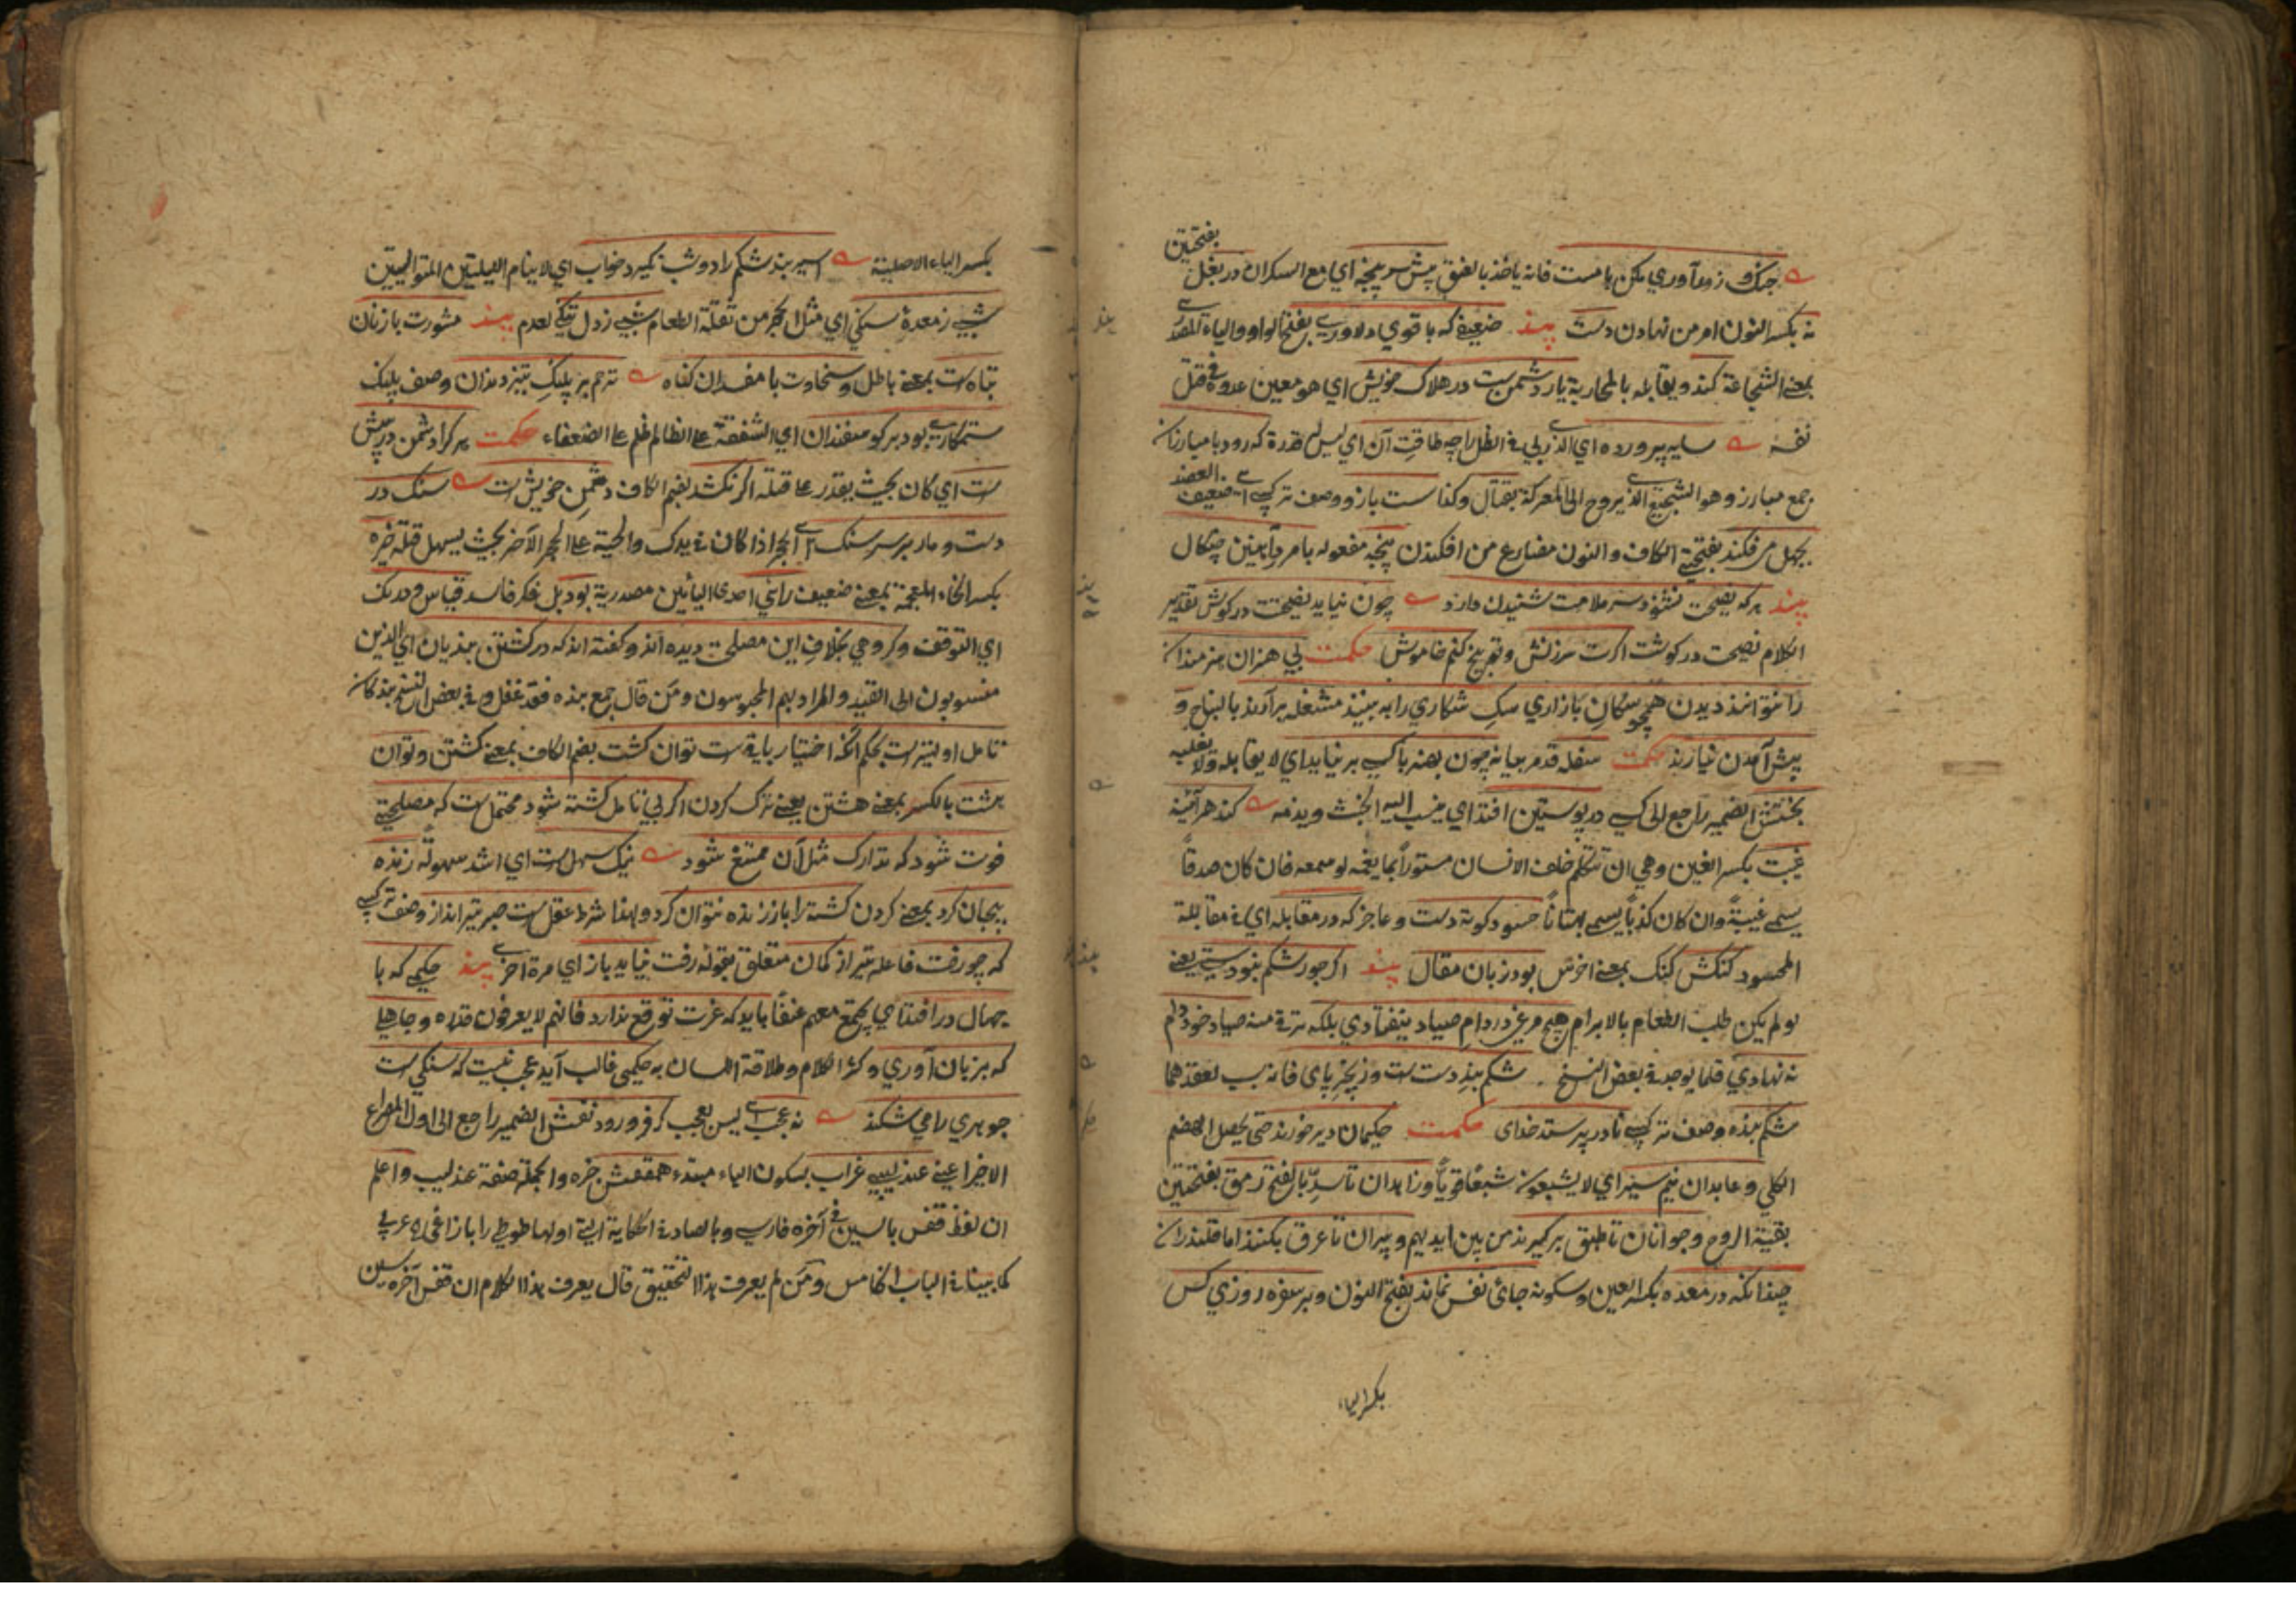 بفتحتين
جنك و زورآوري مكن با مست فانه ياخذ بالعنق پيش سر پنجه اي مع السكران در بغل
نه بكسر النون امر من نهادن دست پند ضعيفي كه با قوي دلاوري بفتح الواو والياء المصدرية
بمعنى الشجاعة كند ويقابله بالمحاربة يار دشمن ست در هلاك خويش اي هو معين عدوه في قتل
نفسه سايه پرورده اي الذي ربي في الظل را چه طاقت آن اي ليس له قدرة كه رود با مبارزان
جمع مبارز وهو الشجيع الذي يروح الى المعركة بقتال وكذا سست بازو وصف تركيبي اي ضعيف العضد
بجهل مي فكند بفتحتي الكاف والنون مضارع من افكندن پنجه مفعوله با مرد آهنين چنكال
پند هر كه نصيحت نشنود سر ملامت شنيدن دارد چون نيايد نصيحت در كوش تقدير
الكلام نصيحت در كوشت اكرت سرزنش وتقريع كنم خاموش حكمت بي هنران هنرمندان
را نتوانند ديدن همچو سكان بازاري سك شكاري را به بينند مشغله برآرند بالنباح و
پيش آمدن نيارند حكمت سفله قدم بيانه چون بهنر با كسي بر نيايد اي لا يقابله ولا يغلبه
بخبثش الضمير راجع الى كسي در پوستين افتد اي ينسب اليه الخبث ويذمه كند هر آئينه
غيبت بكسر الغين وهي ان تتكلم خلف الانسان مستورا بما يغمه لو سمعه فان كان صدقاً
يسمى غيبةً وان كان كذباً يسمى بهتاناً حسود كوته دست وعاجز كه در مقابله اي في مقابلة
المحسود كنكش كنك بمعنى اخرس بود زبان مقال پند اكر جور شكم نبودي يعني
لو لم يكن طلب الطعام بالابرام هيچ مرغ در دام صياد نيفتادي بلكه صياد خود دام
نه نهادي قلما يوجد في بعض النسخ شكم بند دست ست وزنجير پاى فانه سب لعقدهما
شكم بنده وصف تركيبي نادر پرستد خداى حكمت حكيمان دير خورند حتى يحصل الهضم
الكلي وعابدان نيم سير اي لا يشبعون شبعاً قوياً وزاهدان تا سد بالفتح رمق بفتحتين
بقية الروح وجوانان تا طبق بركيرند من بين ايديهم وپيران تا عرق بكنند اما قلندران
چندانكه در معده بكسر العين وسكونه جاى نفس نماند بفتح النون وبر سفره روزي كس
بكسر الياء
بكسر الياء الاصلية اسير بند شكم را دو شب نكيرد خواب اي لا ينام الليلتين المتواليتين
شبي ز معدة سنكي اي مثل الحجر من ثقلة الطعام شبي ز دل تنكي لعدم پند مشورت با زنان
تباه ست بمعنى باطل وسخاوت با مفسدان كناه ترحم بر پلنك تيز دندان وصف پلنك
ستمكاري بود بر كوسفندان اي الشفقة على الظالم ظلم على الضعفاء حكمت هر كرا دشمن در پيش
ست اي كان بحيث يقدر على قتله اكر نكشد بضم الكاف دشمن خويش ست سنك در
دست ومار بر سر سنك اي الحجر اذا كان في يدك والحية على الحجر الآخر بحيث يسهل قتله خيره
بكسر الخاء المعجمة بمعنى ضعيف رائي احدى اليائين مصدرية بود بل فكر فاسد قياس ودرنك
اي التوقف وكروهي بخلاف اين مصلحت ديده اند وكفته اند كه در كشتن بنديان اي الذين
منسوبون الى القيد والمراد بهم المحبوسون ومن قال جمع بنده فقد غفل وفي بعض النسخ بندكان
تامل اوليتر ست بحكم آنكه اختيار باقي ست توان كشت بضم الكاف بمعنى كشتن وتوان
هشت بالكسر بمعنى هشتن يعني ترك كردن اكر بي تامل كشته شود محتمل ست كه مصلحتي
فوت شود كه تدارك مثل آن ممتنع شود نيك سهل ست اي اشد سهولةً زنده
بيجان كرد بمعنى كردن كشته را باز زنده نتوان كرد ولهذا شرط عقل ست صبر تير انداز وصف تركيبي
كه چو رفت فاعله تير از كمان متعلق بقوله رفت نيايد باز اي مرة اخرى پند حكيمي كه با
جهال در افتد اي يجتمع معهم عنفاً بايد كه عزت توقع ندارد فانهم لا يعرفون قدره وجاهلي
كه بزبان آوري وكثر الكلام وطلاقة اللسان به حكيمى غالب آيد عجب نيست كه سنكي ست
جوهري را مي شكند نه عجب اي ليس بعجب كر فرو رود نفسش الضمير راجع الى اول المصراع
الاخير اعني عندليبي غراب بسكون الباء مبتدء هم قفسش خبره والجملة صفة عندليب واعلم
ان لفظ قفس بالسين في آخره فارسي وبالصاد في الحكاية التي اولها طوطي را با زاغي
كما بيناه في الباب الخامس ومن لم يعرف هذا التحقيق قال يعرف هذا الكلام ان قفس آخره سين